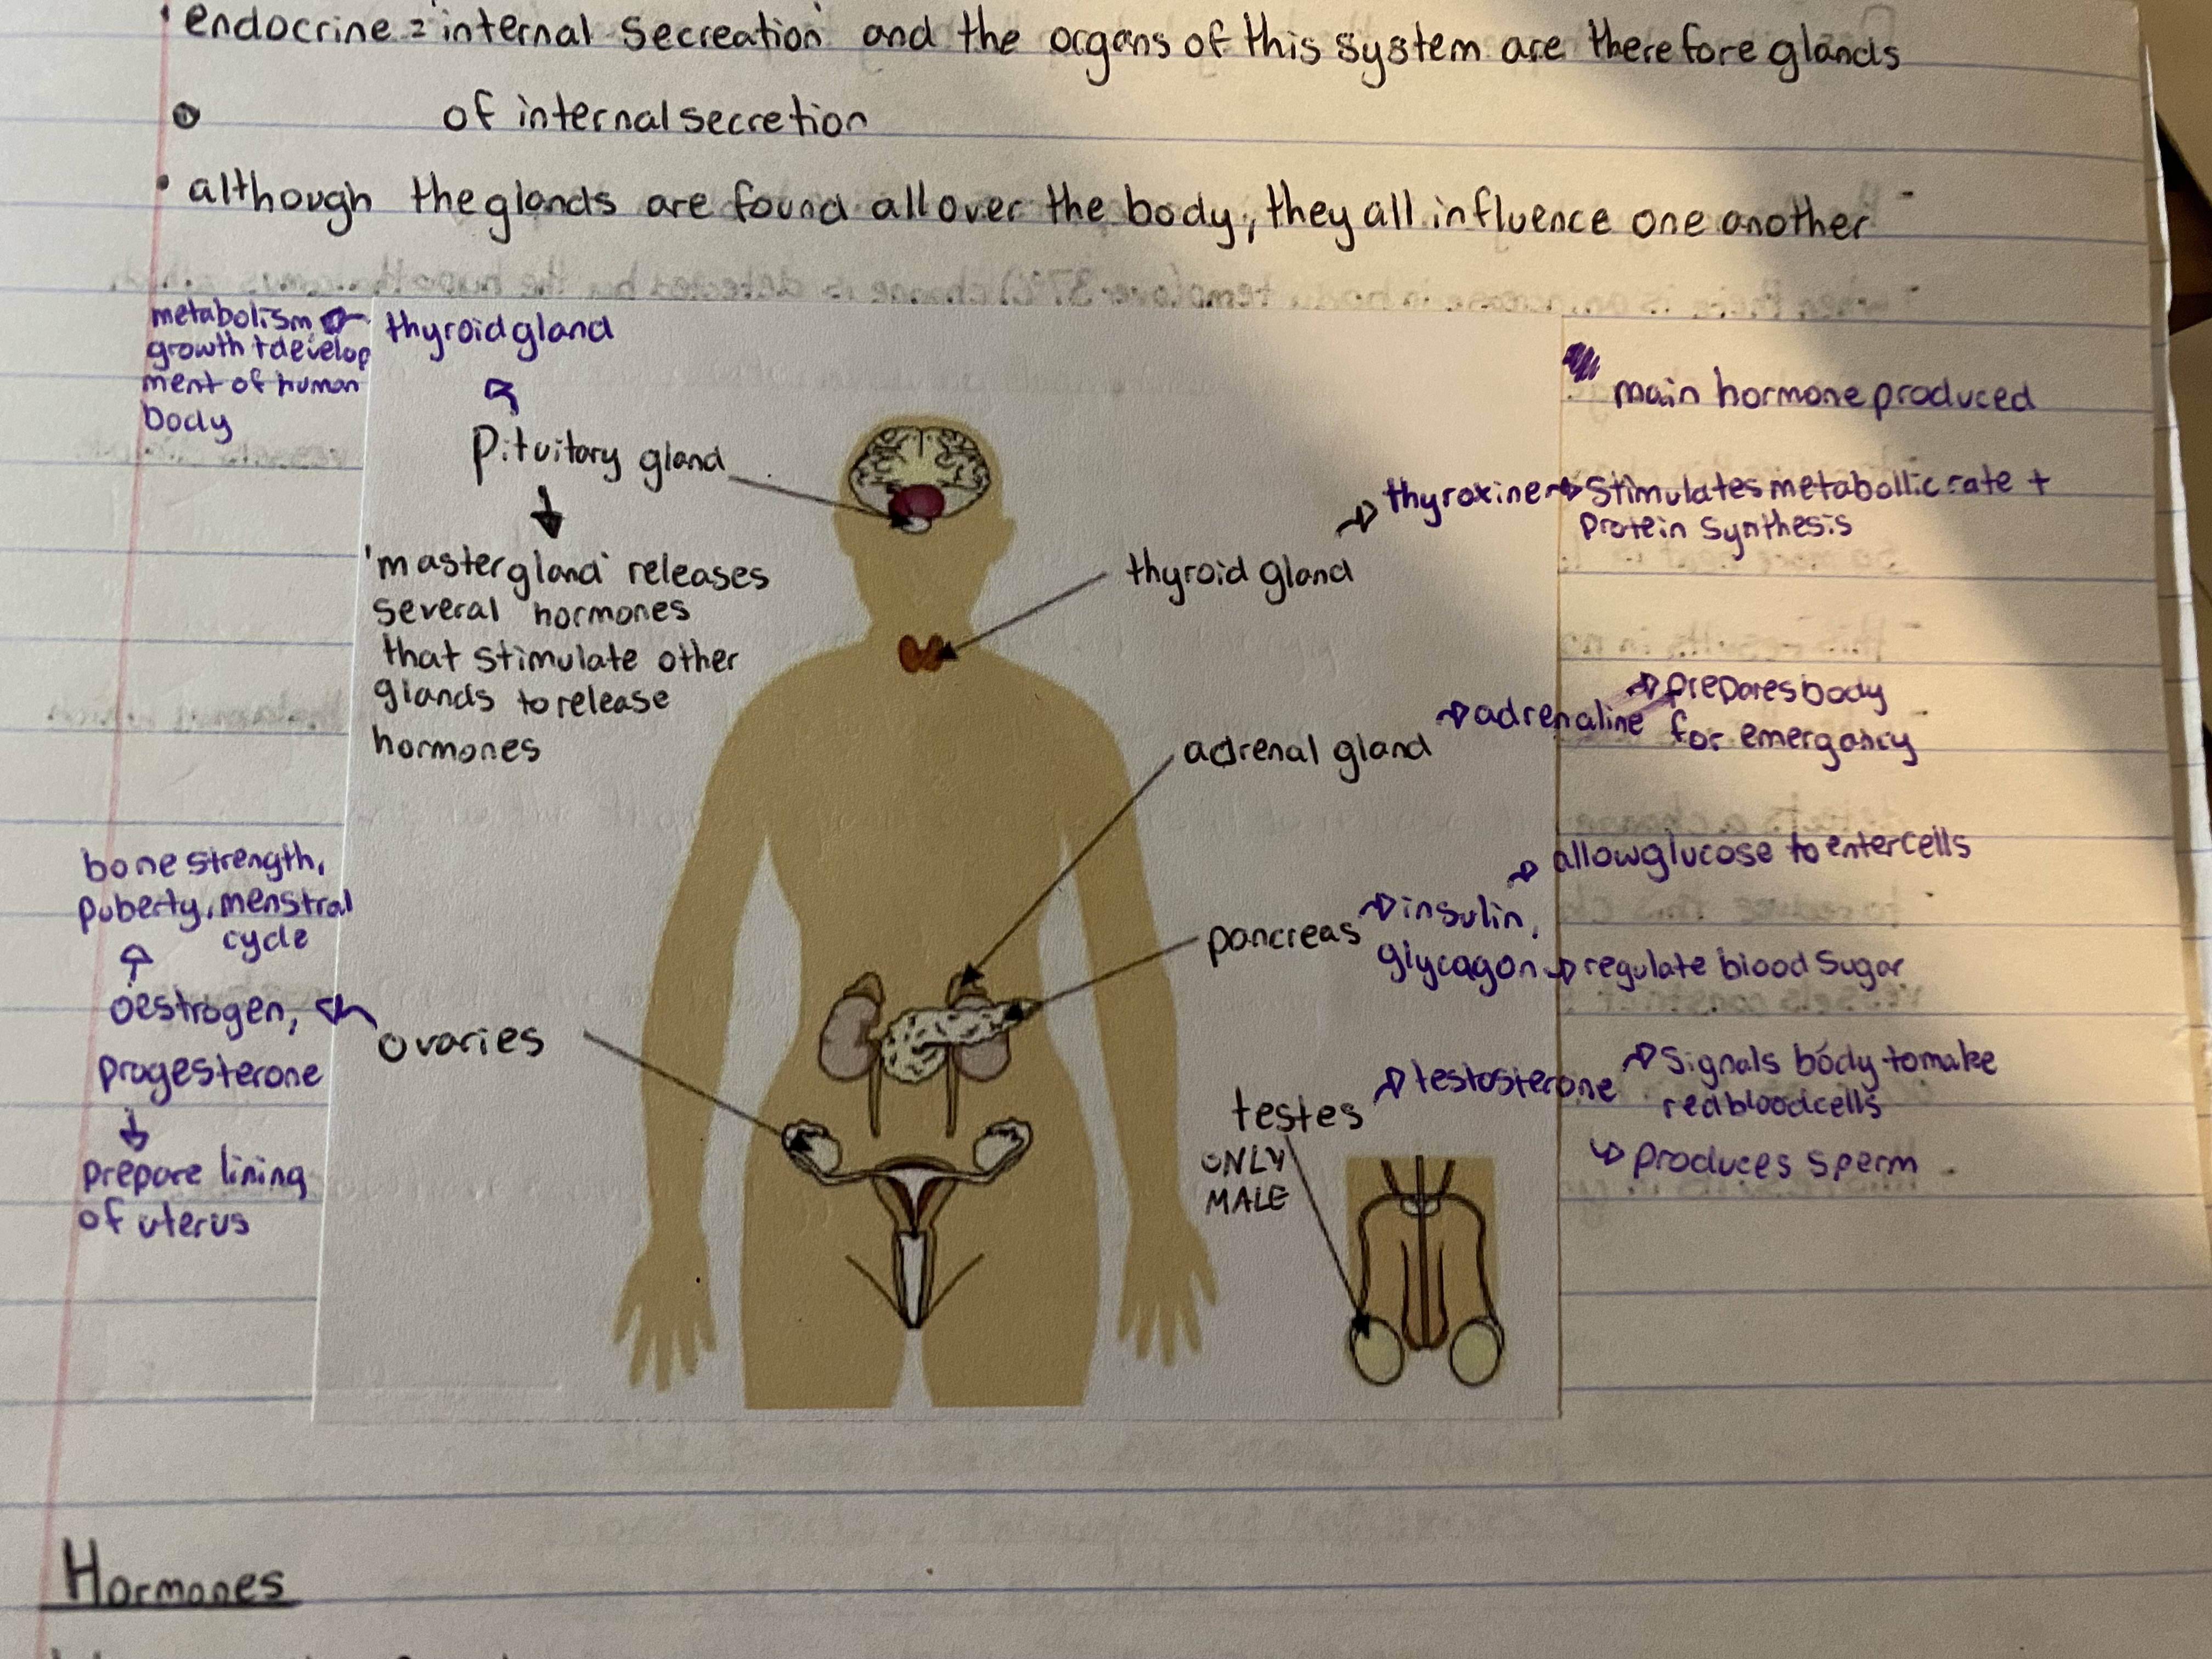 endocrine = 'internal secreation' and the organs of this system are therefore glands
of internal secretion
• although the glands are found all over the body, they all influence one another
metabolism
growth + develop
ment of human
body
thyroid gland
Pituitory gland
'master gland' releases
several hormones
that stimulate other
glands to release
hormones
main hormone produced
thyroxine
Stimulates metabollic rate +
Protein Synthesis
thyroid gland
adrenal gland
adrenaline
prepares body
for emergancy
pancreas
insulin,
glycagon
allow glucose to enter cells
regulate blood sugar
bone strength,
puberty, menstral
cycle
oestrogen,
progesterone
prepare lining
of uterus
ovaries
testes
ONLY
MALE
testosterone
Signals body to make
red blood cells
produces sperm
Hormones